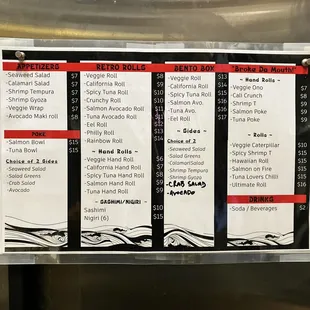 APPETIZERS
-Seaweed Salad $7
-Calamari Salad $7
-Shrimp Tempura $7
-Shrimp Gyoza $7
-Veggie Wrap $7
-Avocado Maki roll $8
POKE
-Salmon Bowl $15
-Tuna Bowl $15
Choice of 2 Sides
-Seaweed Salad
-Salad Greens
-Crab Salad
-Avocado
RETRO ROLLS
-Veggie Roll $8
-California Roll
-Spicy Tuna Roll
-Crunchy Roll
-Salmon Avocado Roll
-Tuna Avocado Roll
-Eel Roll
-Philly Roll
-Rainbow Roll
~ Hand Rolls ~
-Veggie Hand Roll
-California Hand Roll
-Spicy Tuna Hand Roll
-Salmon Hand Roll
-Tuna Hand Roll
~ SASHIMI/NIGIRI ~
Sashimi
Nigiri (6)
BENTO BOX
-Veggie Roll $13
-California Roll
-Spicy Tuna Roll
-Salmon Avo.
-Tuna Avo.
-Eel Roll
~ Sides ~
Choice of 2
-Seaweed Salad
-Salad Greens
-Calamari Salad
-Shrimp Tempura
-Shrimp Gyoza
-CRAB SALAD
-AVOCADO
"Broku Da Mouth"
~ Hand Rolls ~
-Veggie Ono $7
-Cali Crunch
-Shrimp T
-Salmon Poke
-Tuna Poke $9
~ Rolls ~
-Veggie Caterpillar $10
-Spicy Shrimp T
-Hawaiian Roll $15
-Salmon on Fire $15
-Tuna Lovers Chilli $15
-Ultimate Roll $16
DRINKS
-Soda / Beverages $2